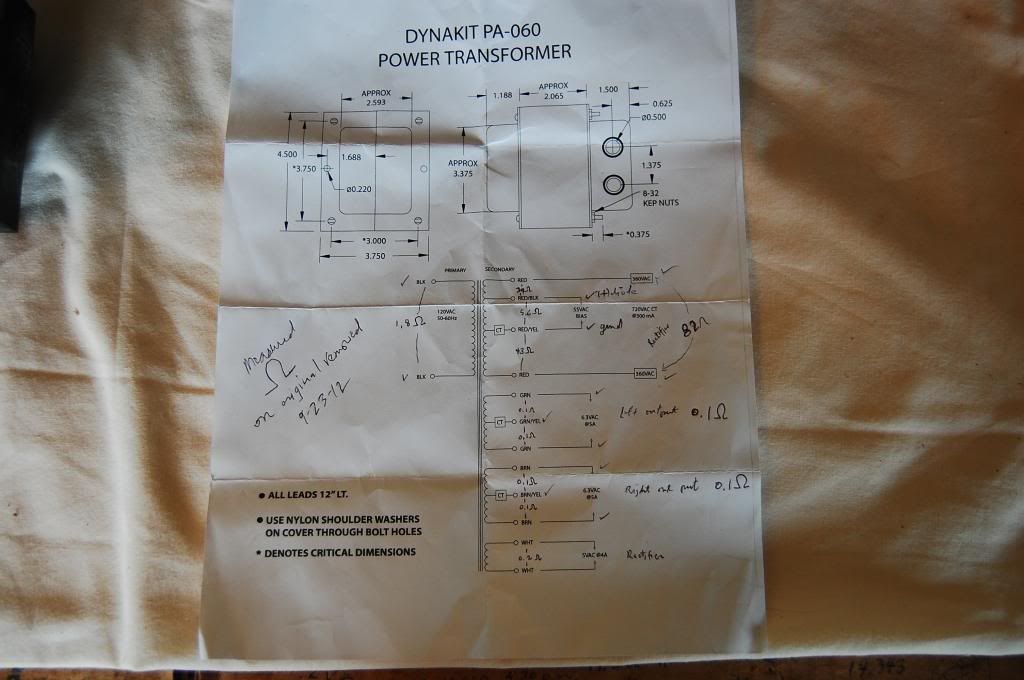 DYNAKIT PA-060
POWER TRANSFORMER
APPROX
2.593
4.500
*3.750
1.688
ø0.220
*3.000
3.750
1.188
APPROX
2.065
1.500
0.625
ø0.500
APPROX
3.375
1.375
8-32
KEP NUTS
*0.375
PRIMARY
SECONDARY
BLK
120VAC
50-60Hz
1.8Ω
BLK
RED
360VAC
RED/BLK
5.6Ω
55VAC
BIAS
720VAC CT
@300 mA
CT
RED/YEL
43Ω
Rectifier
82Ω
RED
360VAC
Measured
Ω
on original removed
9-23-12
GRN
0.1Ω
CT
GRN/YEL
6.3VAC
@5A
Left output 0.1Ω
0.1Ω
GRN
BRN
0.1Ω
CT
BRN/YEL
6.3VAC
@5A
Right output 0.1Ω
0.1Ω
BRN
WHT
0.2Ω
5VAC @4A
Rectifier
WHT
• ALL LEADS 12" LT.
• USE NYLON SHOULDER WASHERS
ON COVER THROUGH BOLT HOLES
* DENOTES CRITICAL DIMENSIONS
14.343